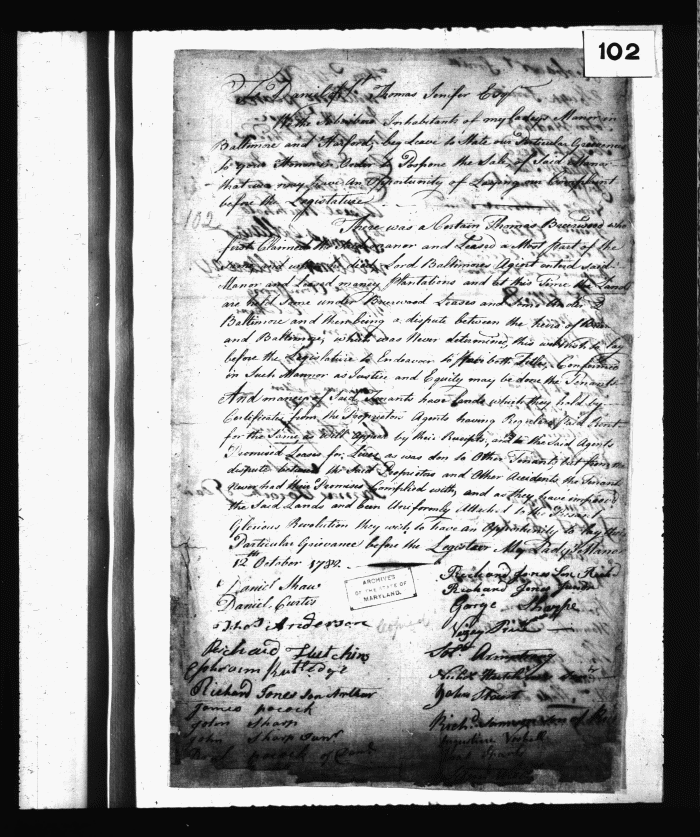 102
To Daniel of St Thomas Jenifer Esqr
We the Subscribers Inhabitants of my Ladys Manor in
Baltimore and Harford, beg Leave to State our Perticular Greavences
to your Honour in Order to Postpone the Sale of Said Manor
that we may have an Opportunity of Laying our Complaint
before the Legislature
102
There was a Certain Thomas Brerewood who
first Claimed the Manor and Leased a Most Part of the
Lord Baltimores Agent entred Said
Manor and Leased maney Plantations and at this Time the Lands
are held Some under Brerewood Leases and
Baltimore and there being a dispute between the Heirs of
and Baltimore, which was Never determined, this we wish to lay
before the Legislature to Endeavour to have both Titles Confirmed
in Such Mannor as Justice and Equity may be done the Tenants
And maney of Said Tenants have Lands which they hold by
Certificates from the Proprietors Agents having Regularly Paid Rent
for the Same as Will appear by their Receipts, and the Said Agents
Promised Leases for Lives as was don to Other Tenants, but from the
dispute between the Said Proprietors and Other Accidents the Tenants
never had their Promises Complied with, and as they have improved
the Said Lands and been Uniformly Attached to the
Glorious Revolution they wish to have an Opportunity to lay their
Particular Grievance before the Legislator My Lady's Manor
12th October 1782
ARCHIVES
OF THE STATE OF
MARYLAND.
Copied
Daniel Shaw
Daniel Curtis
Thos Anderson
Richard Hutchins
Ephraim Rutledge
Richard Jones Son Arthur
James pocock
John Sharp
John Sharp Junr
pocock of
Richard Jones Son Rich
Richard Jones Junior
Gorge Sharpe
Vezey Price
Armstrong
Nichs Hutchins
John Stewart
Richd son of